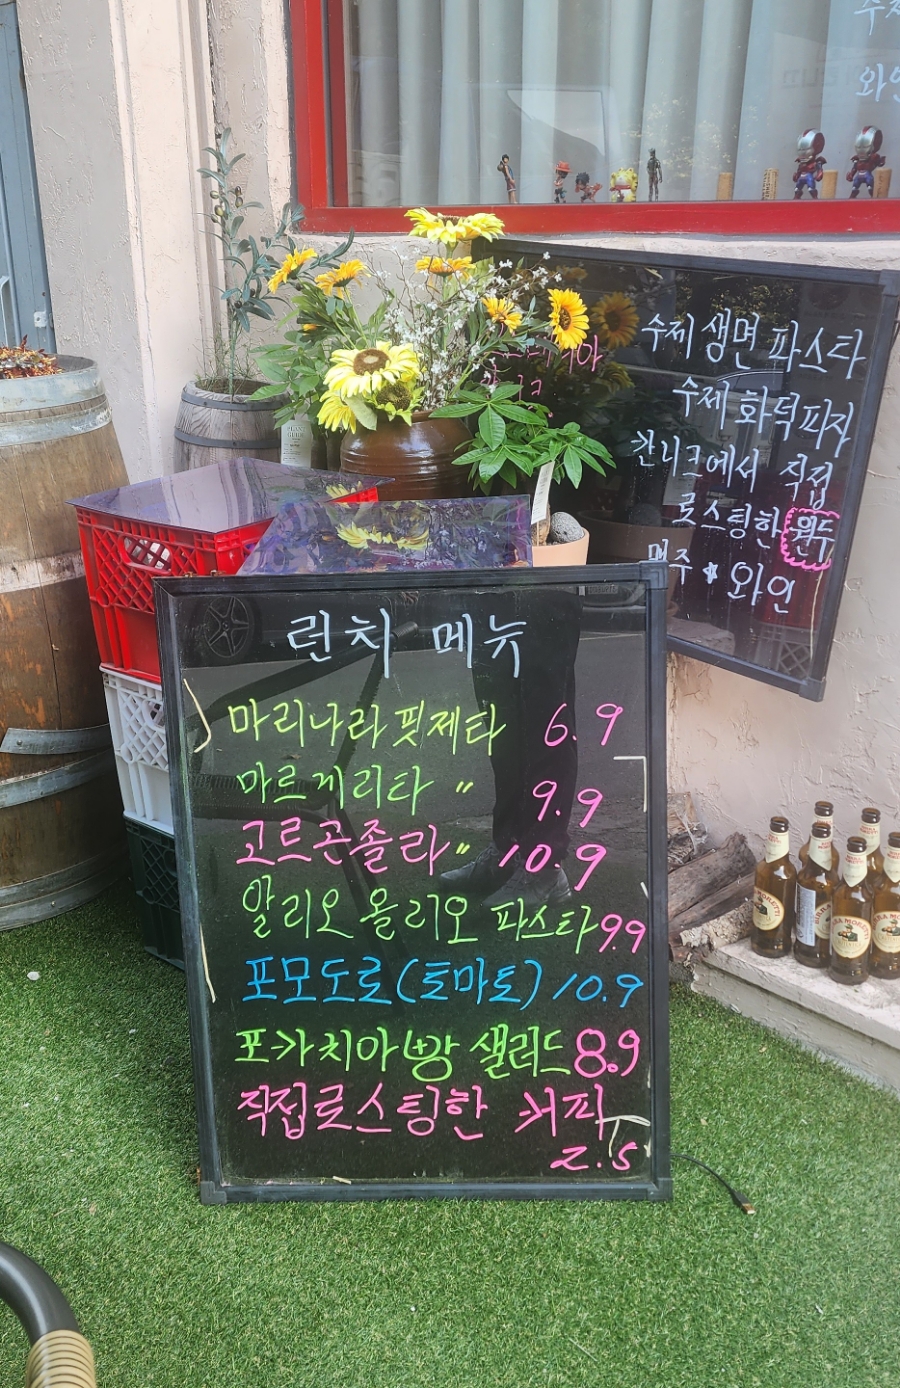 수제
와인
수제 생면 파스타
수제 화덕피자
칸니크에서 직접
로스팅한 원두
맥주 와인
런치 메뉴
마리나라 핏제타 6.9
마르게리타 〃 9.9
고르곤졸라 〃 10.9
알리오올리오 파스타 9.9
포모도로(토마토) 10.9
포카치아빵 샐러드 8.9
직접로스팅한 커피
2.5